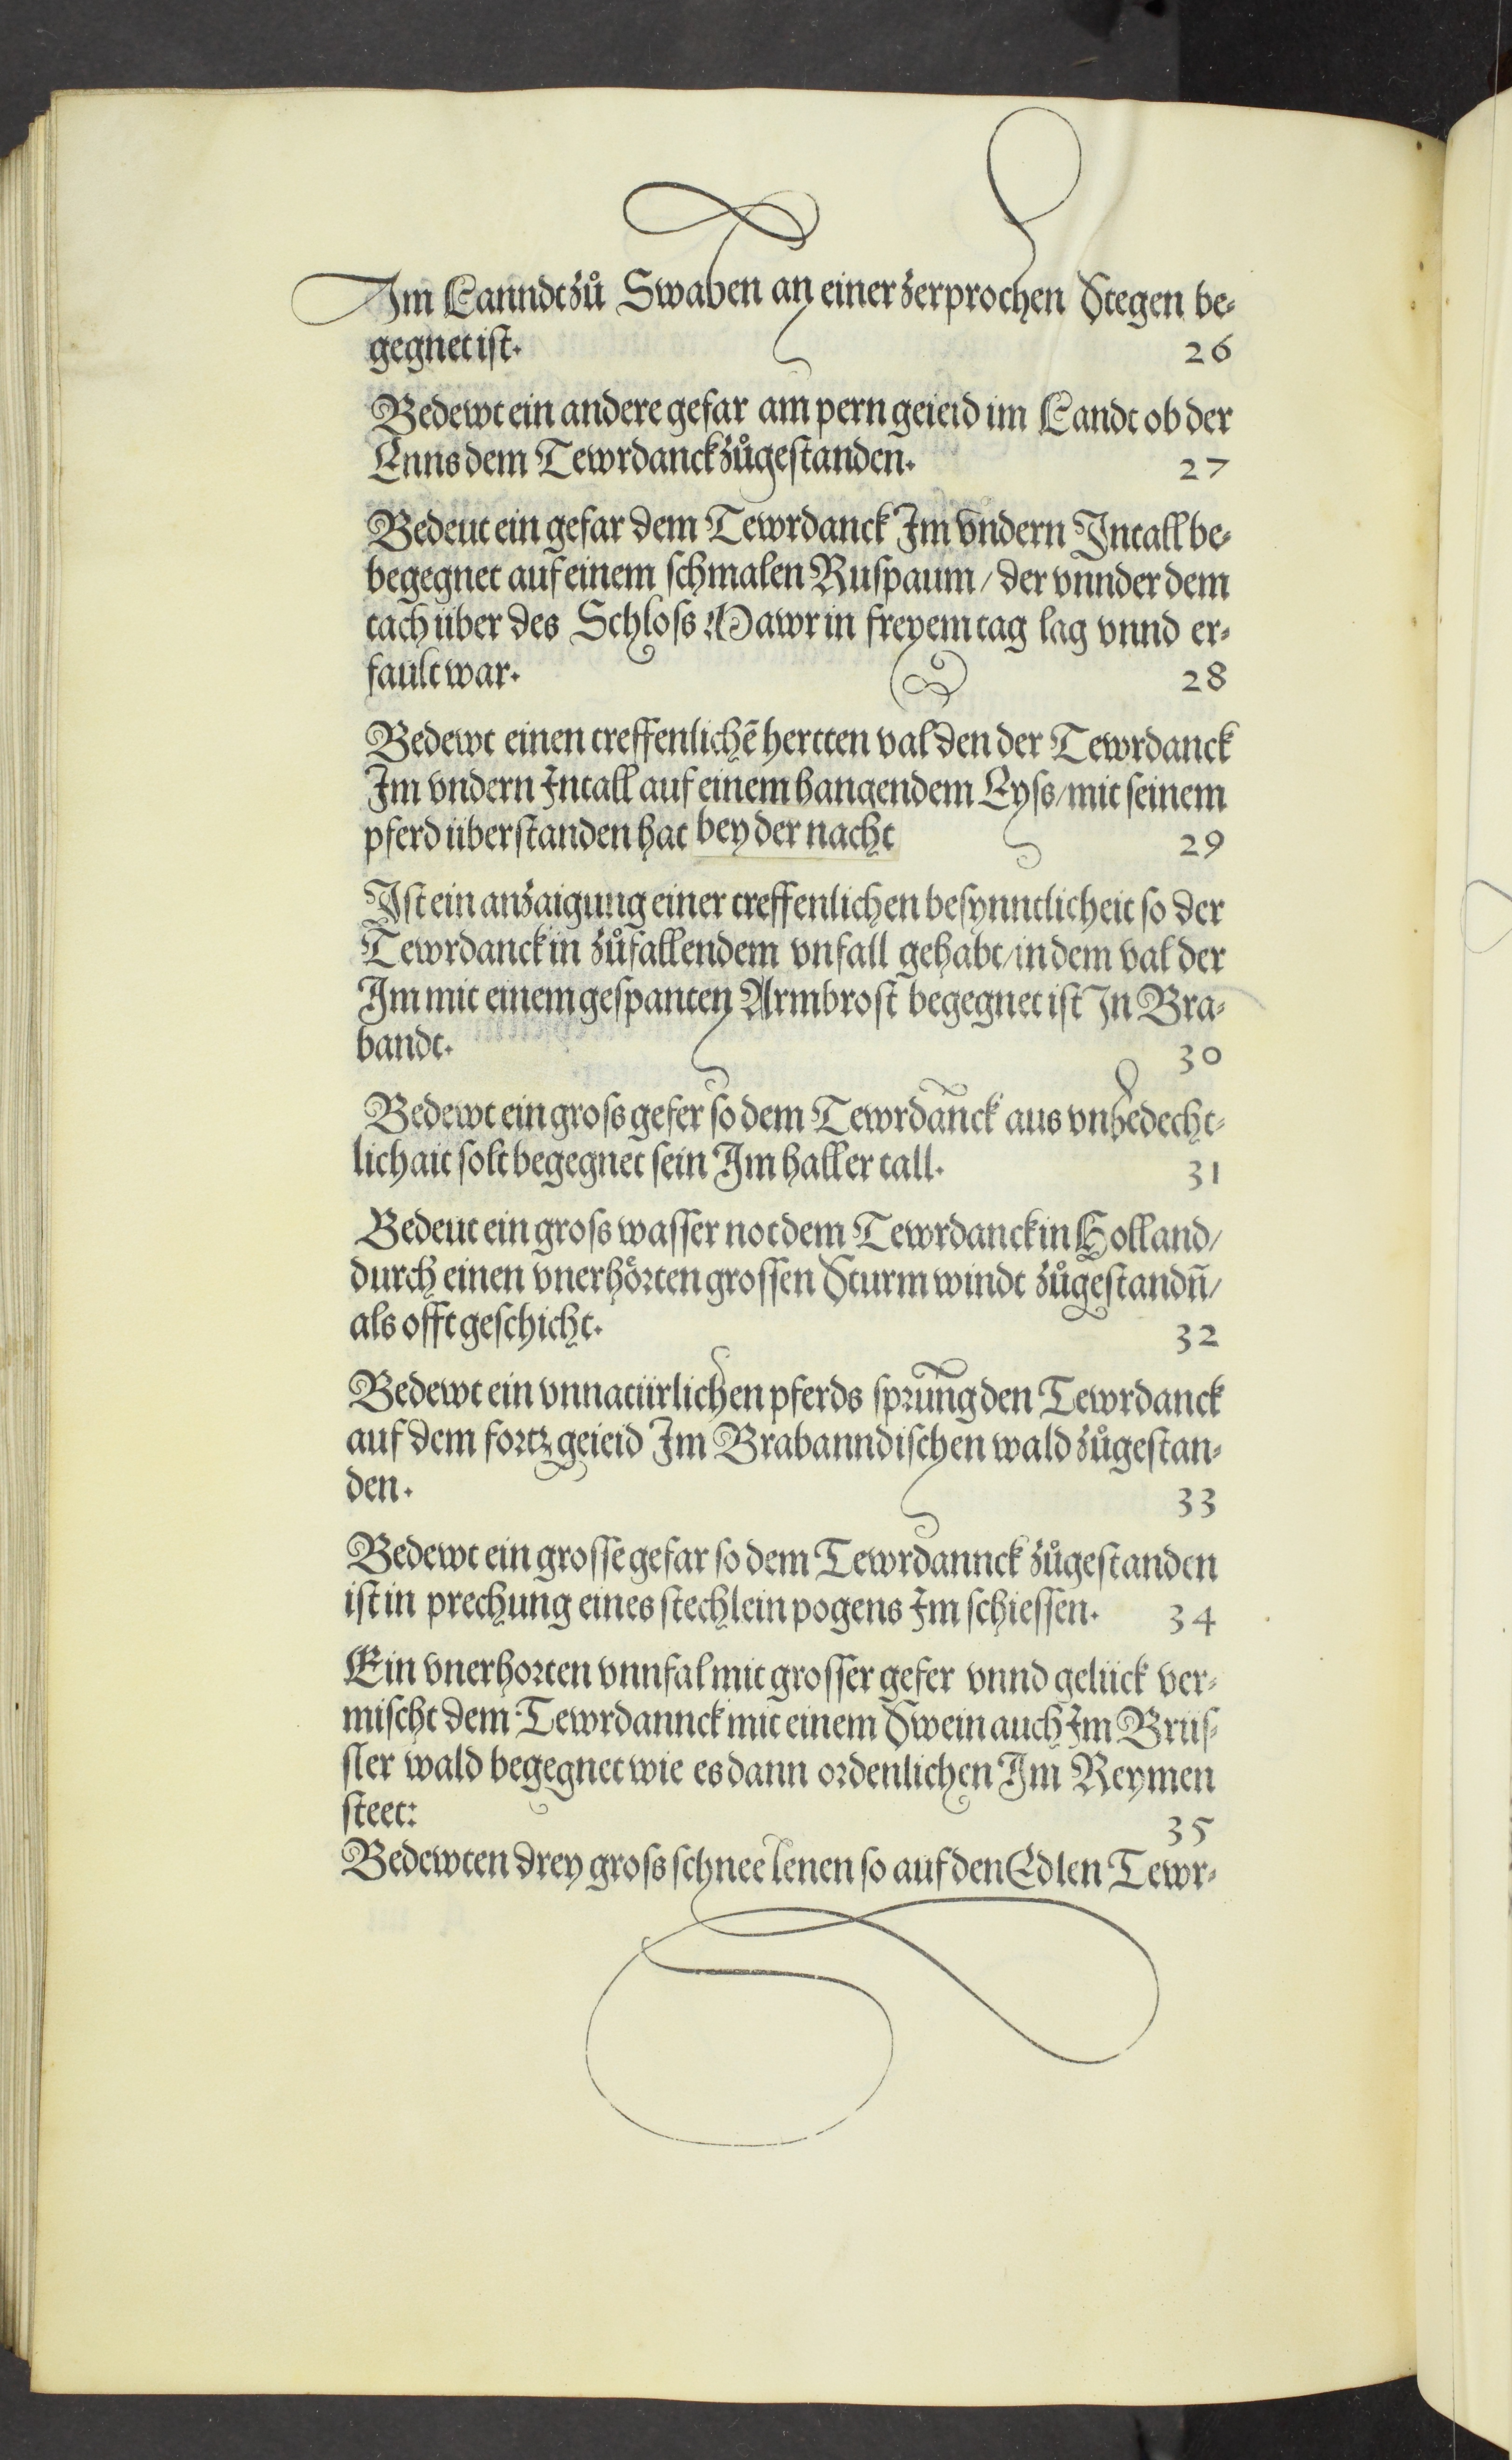 Im Lanndt zů Swaben an einer zerprochen Stegen be⸗
gegnet ist.
26
Bedewt ein andere gefar am pern geieid im Landt ob der
Enns dem Tewrdanck zůgestanden.
27
Bedeut ein gefar dem Tewrdanck Im vndern Intall be⸗
begegnet auf einem schmalen Ruspaum / der vnnder dem
tach über des Schloss Mawr in freyem tag lag vnnd er⸗
fault war.
28
Bedewt einen treffenlichē hertten val den der Tewrdanck
Im vndern Intall auf einem hangendem Eyss / mit seinem
pferd überstanden hat bey der nacht
29
Ist ein anzaigung einer treffenlichen besynntlicheit so der
Tewrdanck in zůfallendem vnfall gehabt / in dem val der
Im mit einem gespanten Armbrost begegnet ist In Bra⸗
bandt.
30
Bedewt ein gross gefer so dem Tewrdanck aus vnbedecht⸗
lichait solt begegnet sein Im haller tall.
31
Bedeut ein gross wasser not dem Tewrdanck in Holland /
durch einen vnerhörten grossen Sturm windt zůgestandn̄ /
als offt geschicht.
32
Bedewt ein vnnatürlichen pferds sprung den Tewrdanck
auf dem fortz geieid Im Brabanndischen wald zůgestan⸗
den.
33
Bedewt ein grosse gefar so dem Tewrdannck zůgestanden
ist in prechung eines stechlein pogens Im schiessen.
34
Ein vnerhorten vnnfal mit grosser gefer vnnd gelück ver⸗
mischt dem Tewrdannck mit einem Swein auch Im Brüs⸗
sler wald begegnet wie es dann ordenlichen Im Reymen
steet:
35
Bedewten drey gross schnee lenen so auf den Edlen Tewr⸗